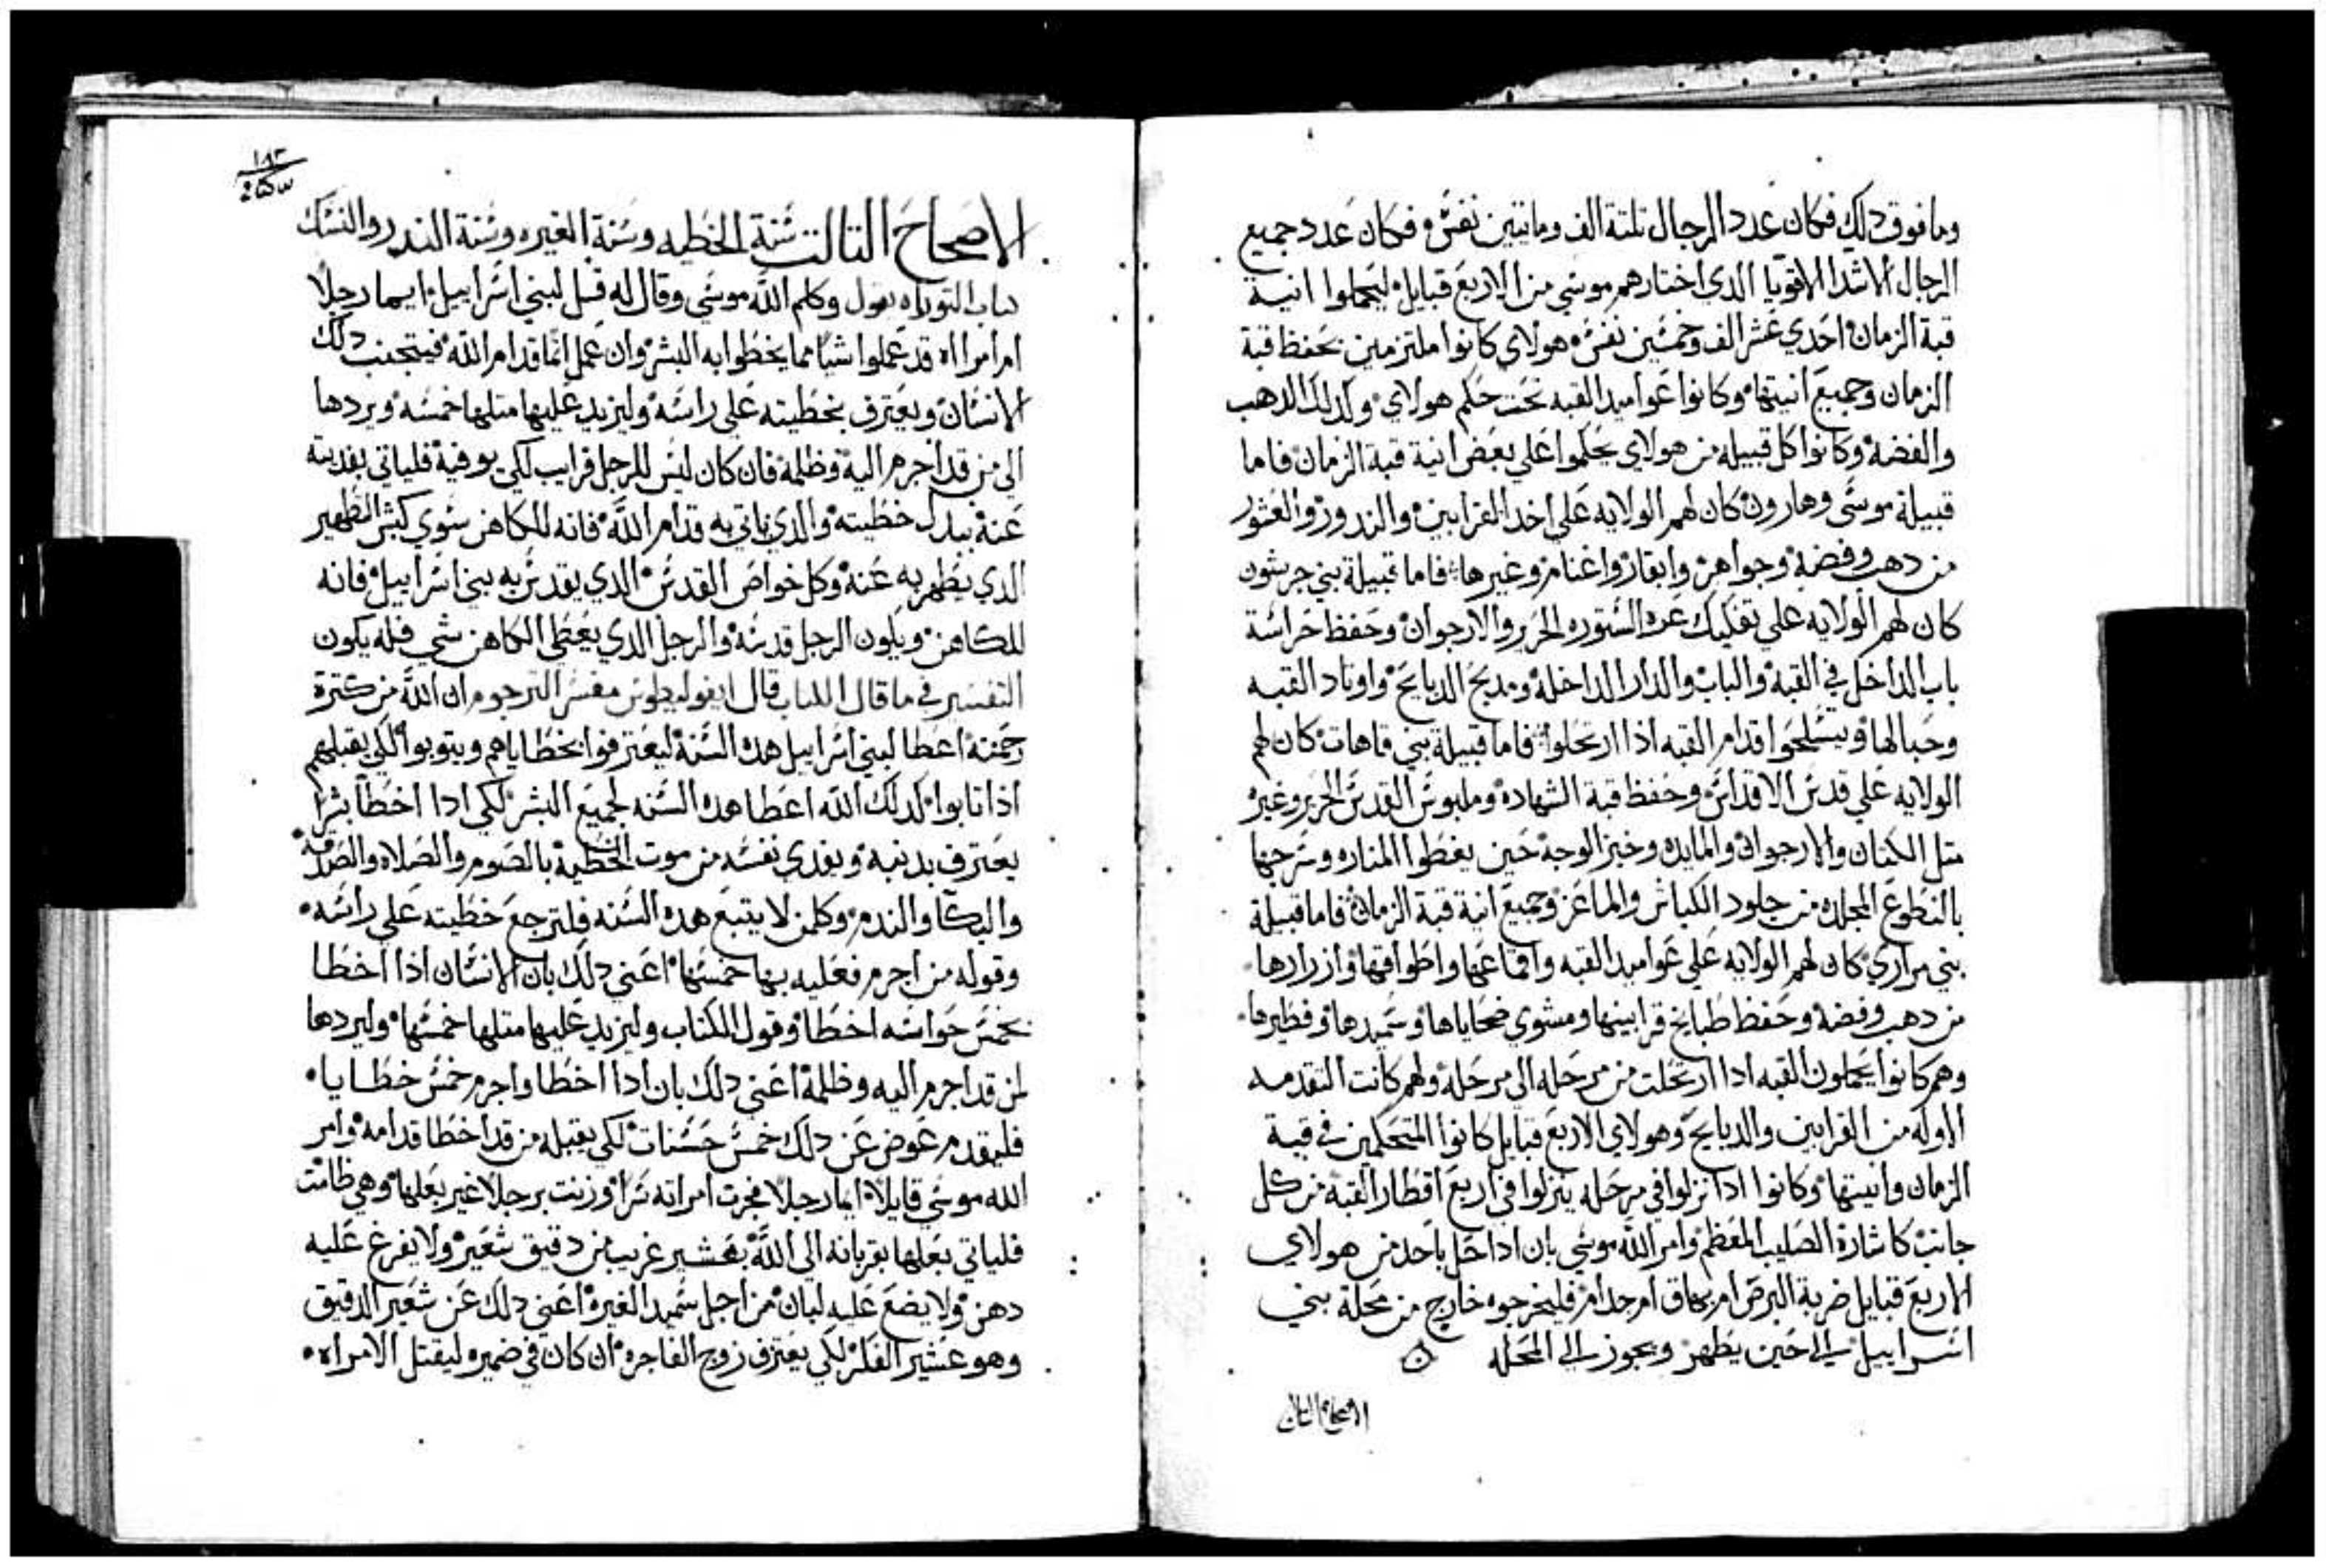 وما فوق دلك فكان عدد الرجال تلتة الف وماتين نفس وفكان عدد جميع
الرجال الاشدا الاقويا الدي اختارهم موسي من الاربع قبايل ليحملوا انية
قبة الزمان احدي عشر الف وخمسين نفس هولاي كانوا ملتزمين بحفظ قبة
الزمان وجميع انيتها وكانوا عواميد القبه تحت حكم هولاي وكدلك الدهب
والفضه وكانوا كل قبيله من هولاي يحكموا علي بعض انية قبة الزمان فاما
قبيلة موسي وهارون كان لهم الولايه علي اخد القرابين والندور والعشور
من دهب وفضه وجواهر وابقار واغنام وغيرها فاما قبيلة بني جرشون
كان لهم الولايه علي تفكيك عره الستوره الحرير والارجوان وحفظ حراسة
باب الداخل في القبه والباب والدار الداخله ومدبح الدبايح واوتاد القبه
وحبالها ويسلحوا قدام القبه اذا ارتحلوا فاما قبيلة بني قاهات كان لهم
الولايه علي قدس الاقداس وحفظ قبة الشهاده وملبوس القدس الحرير وغيره
متل الكتان والارجوان والمايده وخبز الوجه حين يغطوا المناره وسرجها
بالنطوع المجلده من جلود الكباش والماعز وجميع انية قبة الزمان فاما قبيلة
بني مراري كان لهم الولايه علي عواميد القبه واقماعها واطواقها وازرارها
من دهب وفضه وحفظ طبايخ قرابينها ومشوي ضحاياها وسميدها وفطيرها
وهم كانوا يحملون القبه ادا ارتحلت من مرحله الي مرحله ولهم كانت التقدمه
الاوله من القرابين والدبايح وهولاي الاربع قبايل كانوا المتحكمين في قبة
الزمان وانيتها وكانوا ادا نزلوا في مرحله ينزلوا في اربع اقطار القبه من كل
جانب كاشارة الصليب المعظم وامر الله موسي بان ادا حل باحد من هولاي
الاربع قبايل ضربة البرص ام بهاق ام جدام فليخرجوه خارج من محلة بني
اسراييل الي حين يطهر ويجوز الي المحله
الاصحاح التالت
١٨٣
الاصحاح التالت سنة الخطيه وسنة الغيره وسنة الندر والنسك
كتاب التوراه يقول وكلم الله موسي وقال له قل لبني اسراييل ايما رجلا
ام امراه قد عملوا شيا مما يخطوا به البشر وان عمل اتما قدام الله فيتجنب دلك
الانسان ويعترف بخطيته علي راسه وليزيد عليها متلها خمسه ويردها
الي من قد اجرم اليه وظلمه فان كان ليس للرجل قرايب لكي يوفيه فلياتي بفديته
عنه بدل خطيته والدي ياتي به قدام الله فانه للكاهن سوي كبش التطهير
الدي يطهر به عنه وكل خواص القدس الدي يقدس به بني اسراييل فانه
للكاهن ويكون الرجل قدسه والرجل الدي يعطي الكاهن شي فله يكون
التفسير في ما قال الكتاب قال ايفوليطوس مفسر الترجوم ان الله من كترة
رحمته اعطا لبني اسراييل هده السنه ليعترفوا بخطاياهم ويتوبوا لكي يقبلهم
اذا تابوا كدلك الله اعطا هده السنه لجميع البشر لكي ادا اخطا بشرا
يعترف بدنبه ويفدي نفسه من موت الخطيه بالصوم والصلاه والصدقه
والبكا والندم وكلمن لا يتبع هده السنه فلترجع خطيته علي راسه
وقوله من اجرم فعليه بها خمسها اعني دلك بان الانسان اذا اخطا
بخمس حواسه اخطا وقول الكتاب وليزيد عليها متلها خمسها وليردها
لمن قد اجرم اليه وظلمه اعني دلك بان ادا اخطا واجرم خمس خطايا
فليقدم عوض عن دلك خمس حسنات لكي يقبله من قد اخطا قدامه وامر
الله موسي قايلا ايما رجلا فجرت امراته سرا وزنت برجلا غير بعلها وهي طامت
فلياتي بعلها بقربانه الي الله بعشير غريب من دقيق شعير ولا يفرغ عليه
دهن ولا يضع عليه لبان من اجل سميد الغيره اعني دلك عن شعير الدقيق
وهو عشير الفكر لكي يعترف زوج الفاجره ان كان في ضميره ليقتل الامراه